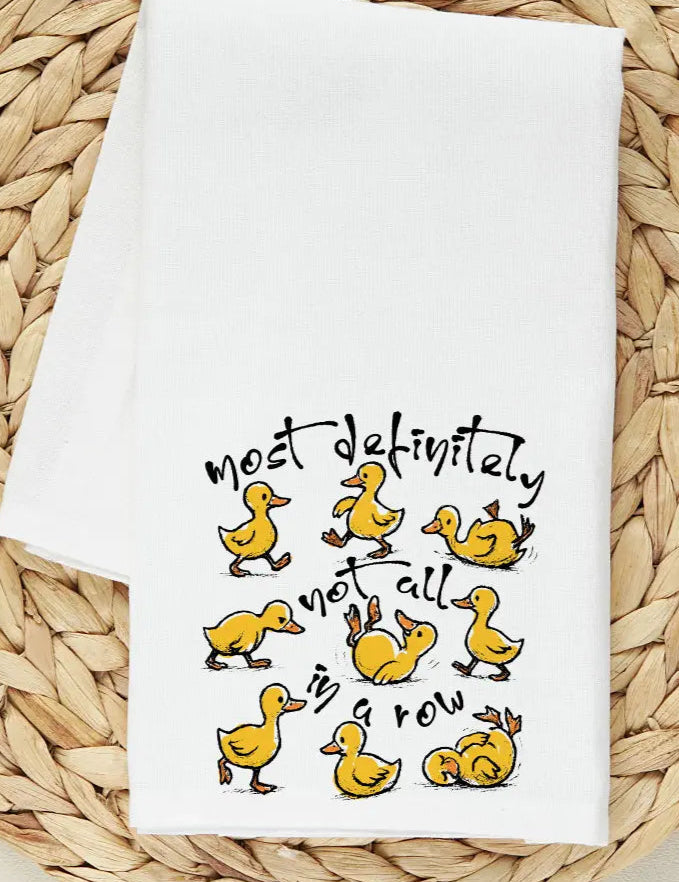 most definitely
not all
in a row